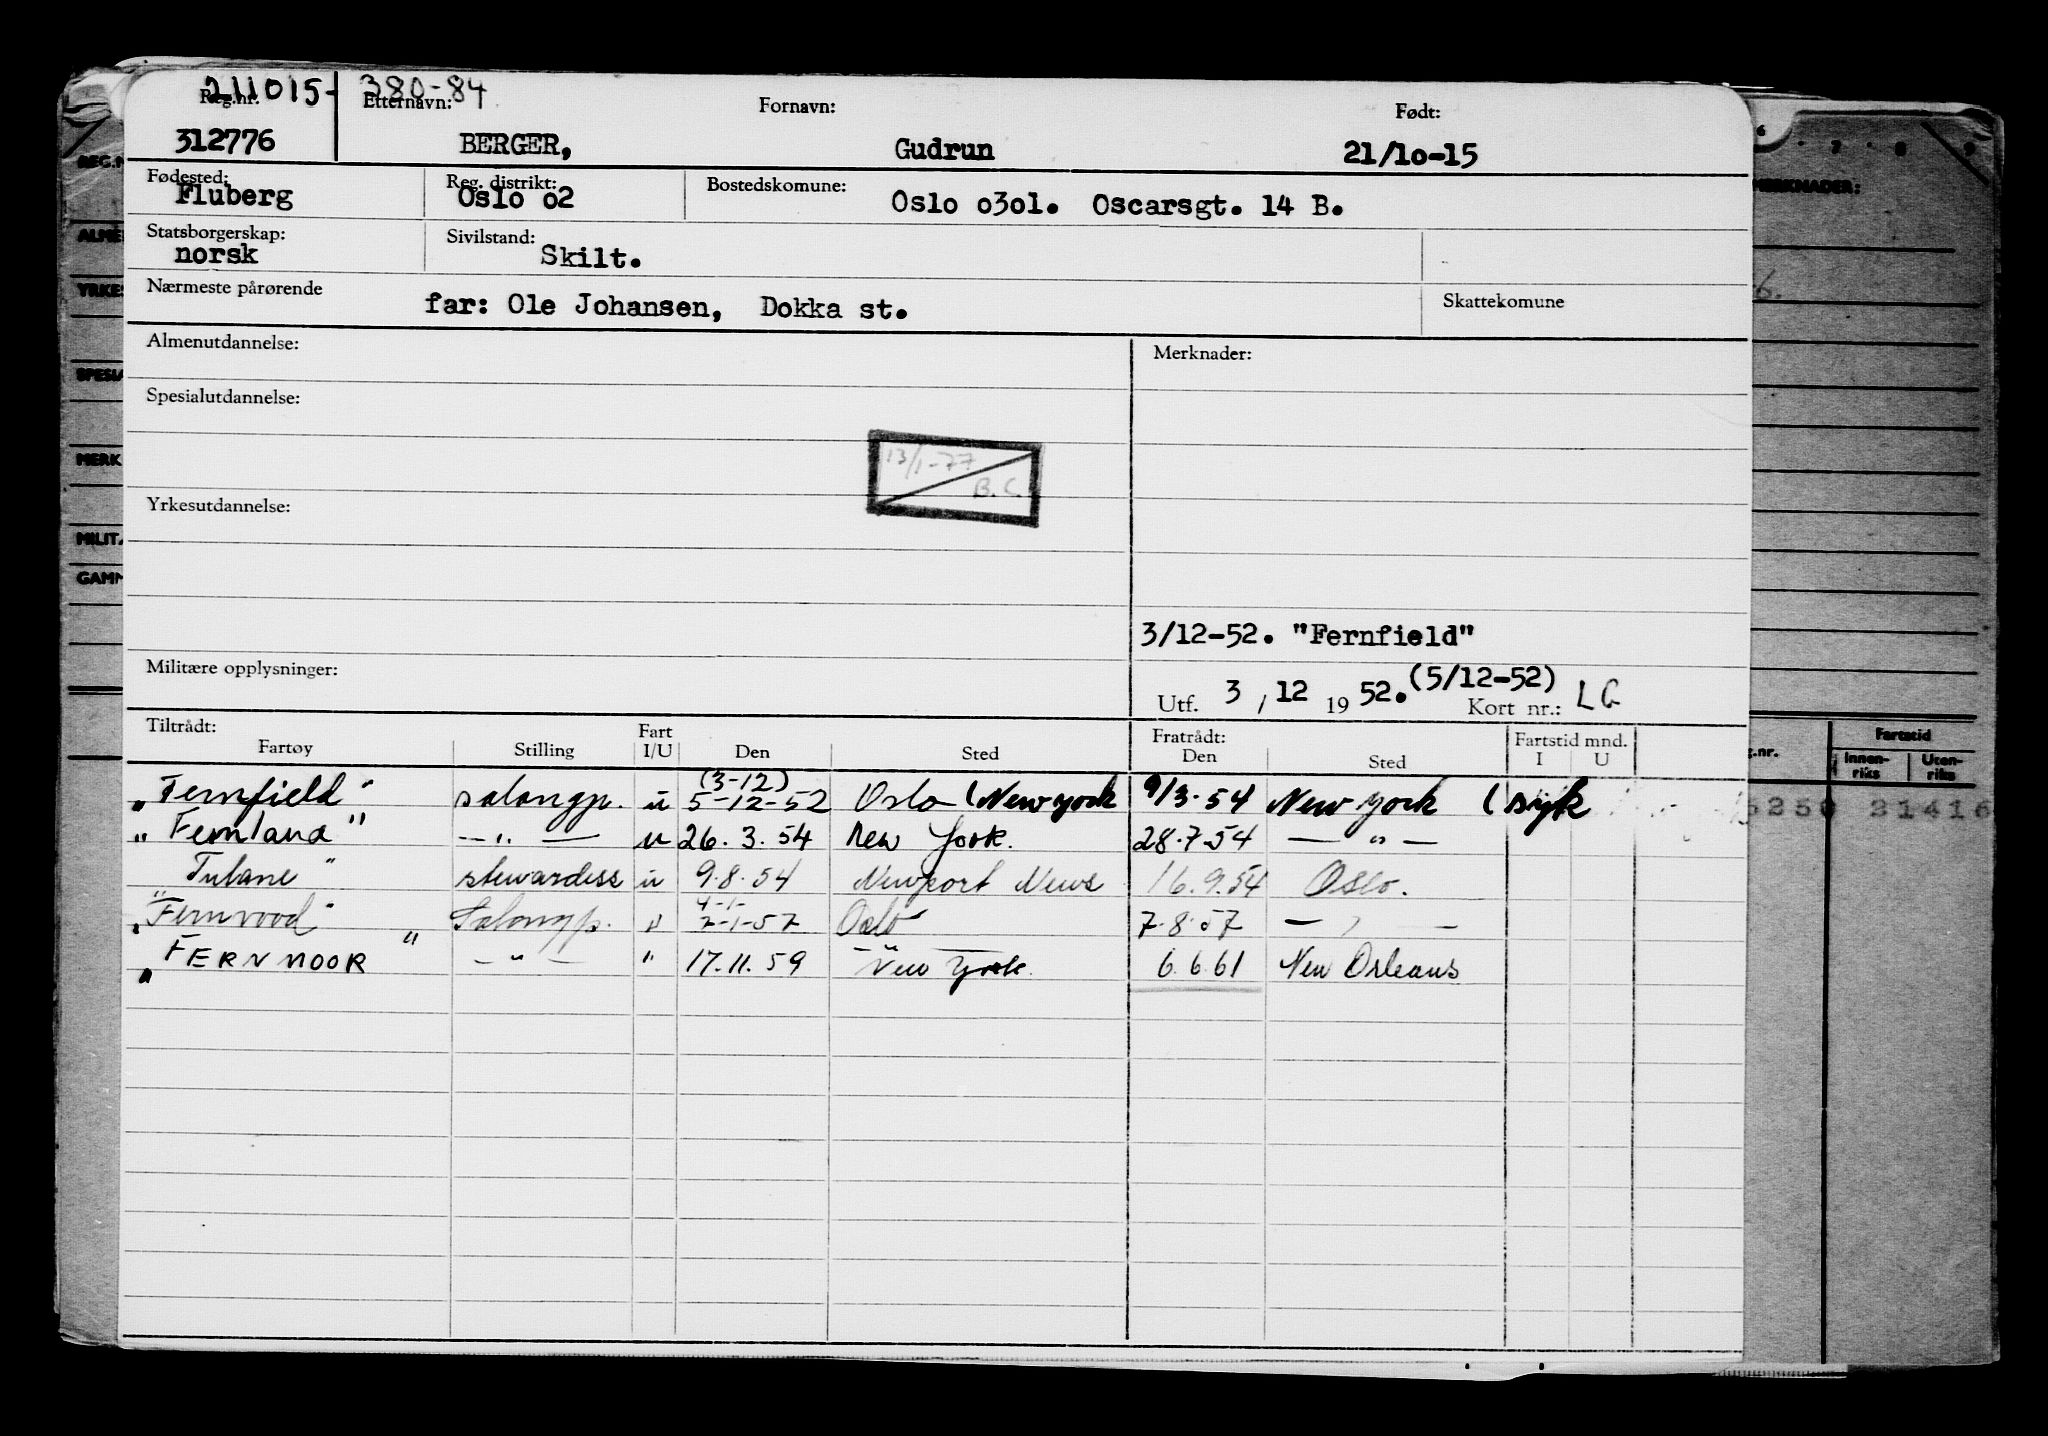 211015- 380-84
Reg.nr. Etternavn: Fornavn: Født:
312776 BERGER, Gudrun 21/10-15
Fødested: Reg. distrikt: Bostedskomune:
Fluberg Oslo o2 Oslo o3o1. Oscarsgt. 14 B.
Statsborgerskap: Sivilstand:
norsk Skilt.
Nærmeste pårørende Skattekomune
far: Ole Johansen, Dokka st.
Almenutdannelse: Merknader:
Spesialutdannelse:
13/1-77
B.C.
Yrkesutdannelse:
3/12-52. "Fernfield"
Militære opplysninger:
Utf. 3 / 12 19 52. (5/12-52) Kort nr.: LG
Tiltrådt: Fart Fratrådt: Fartstid mnd.
Fartøy Stilling I/U Den Sted Den Sted I U
(3-12)
"Fernfield" salongp. u 5-12-52 Oslo (New york 9/3.54 New York (syk
"Fernland" —"— u 26.3.54 New York. 28.7.54 —"—
"Tulane" stewardess u 9.8.54 Newport News 16.9.54 Oslo.
4-1-
"Fernwood" Salongp. " 2-1-57 Oslo 7.8.57 — " —
"FERNMOOR" —"— " 17.11.59 New York. 6.6.61 New Orleans
REG.N
ALME
YRKES
SPESIA
MERK
MILITÆ
GAMM
6 7 8 9
MERKNADER:
6.
g.nr. Fartstid
Innen-riks Uten-riks
5250 21416